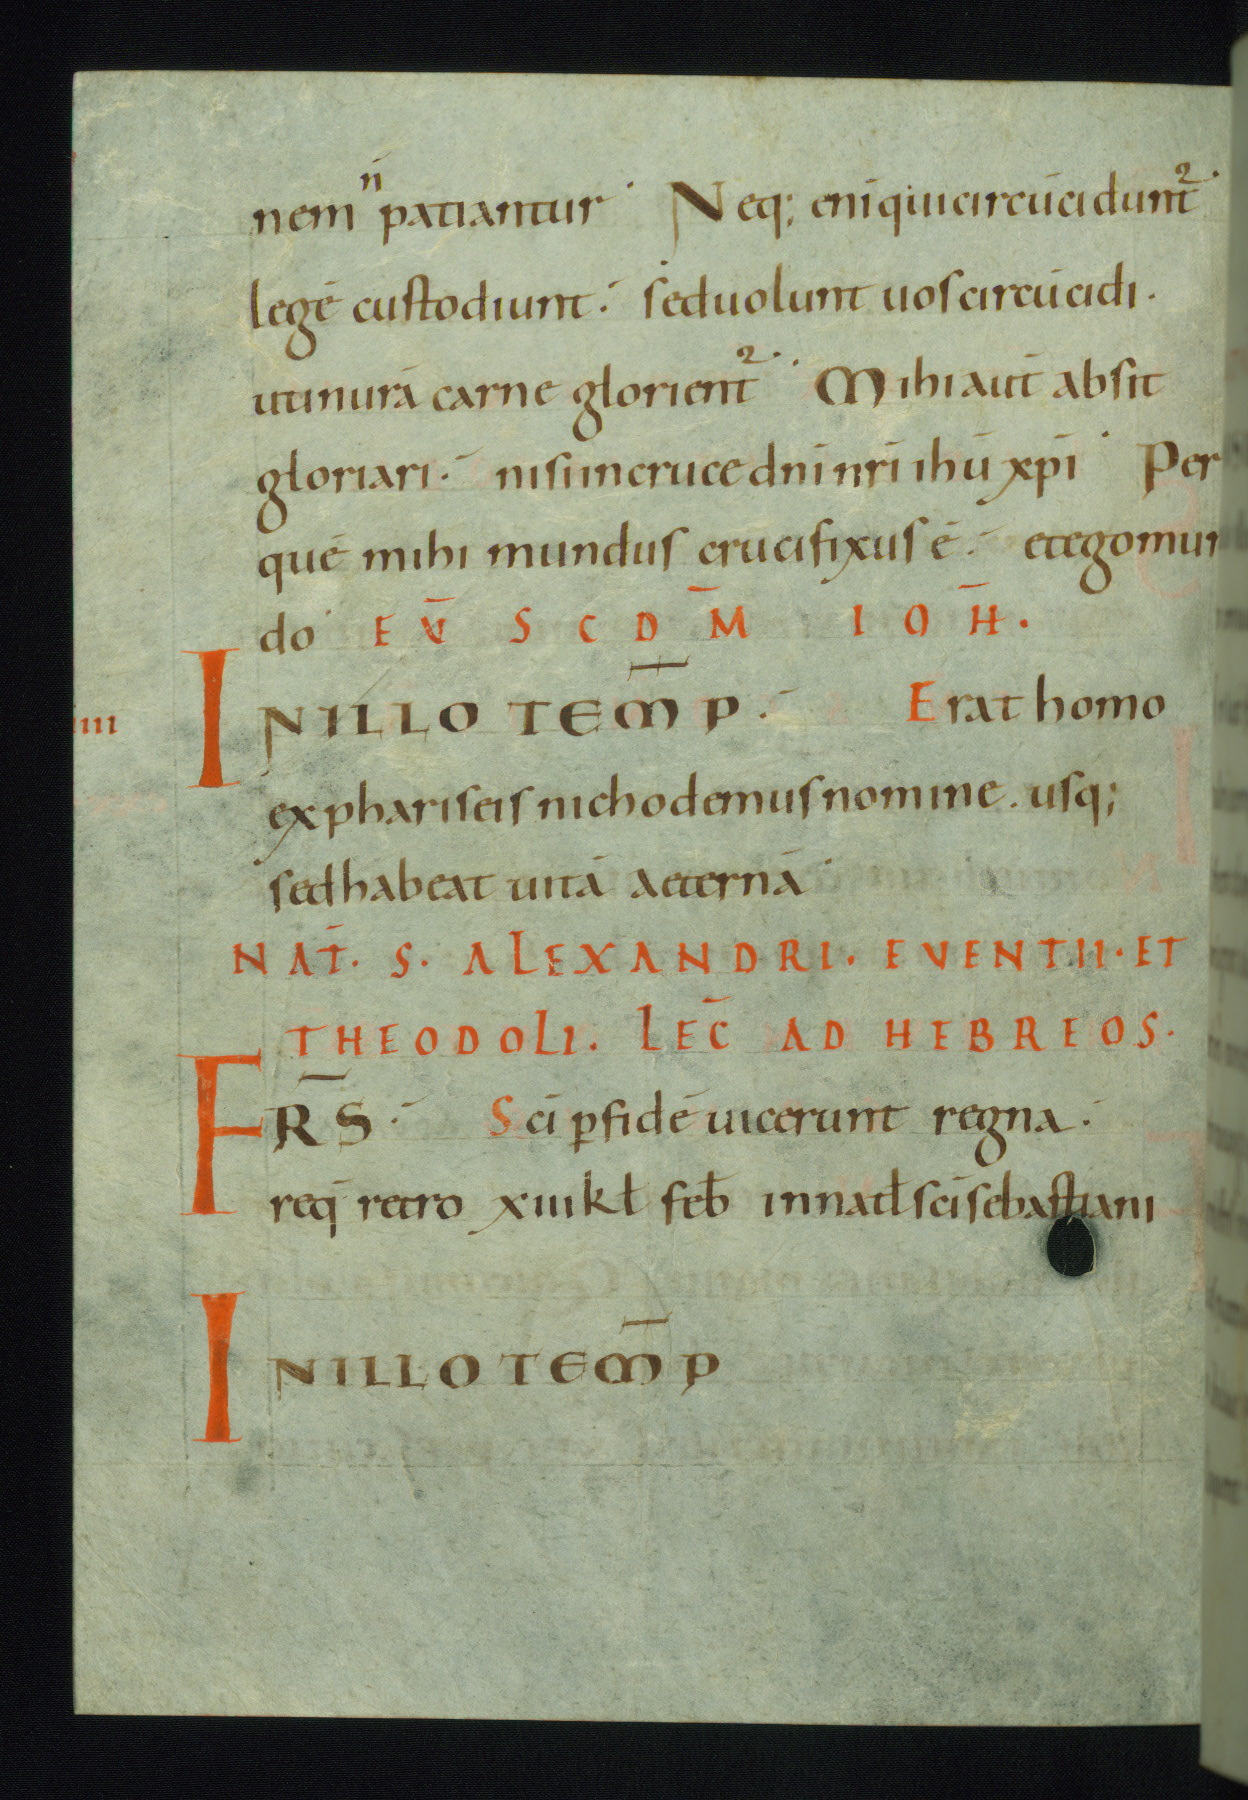 nem n̄ patiantur· Neq; enī qui circūcidunt᷑·
legē custodiunt·́ sed uolunt uos circūcidi·
ut in urā carne glorient᷑·· Mihi aut̄ absit
gloriari·́ nisi in cruce dnī nrī ihū xpī· Per
quē mihi mundus crucifixus ē·́ et ego mun
do· EV̄ SCDM̄ IOH̄.
IN ILLO TEMP̄·́ Erat homo
iiii
ex phariseis nichodemus nomine. usq;
sed habeat uitā aeternā·
NAT̄. S. ALEXANDRI. EVENTII. ET
THEODOLI. LEC̄ AD HEBREOS.
FRS̄·́ Sci ꝑ fidē uicerunt regna·́
req̄ retro xiii kł feƀ in natł sci sebastiani
IN ILLO TEMP̄